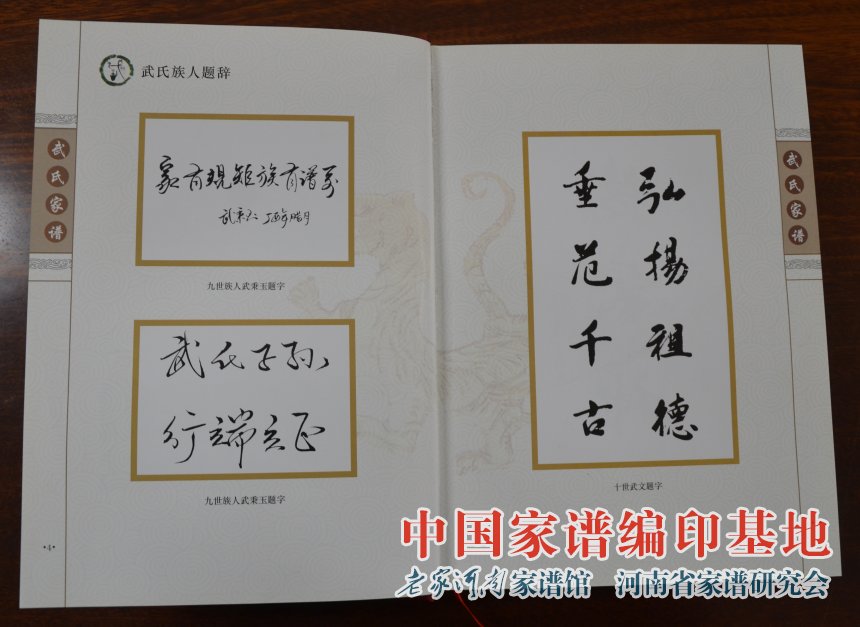 武氏族人题辞
武氏家谱
家有规矩族有谱
九世族人武秉玉题字
武氏子孙
行端立正
九世族人武秉玉题字
弘揚祖德
垂范千古
十世武文题字
武氏家谱
中国家谱编印基地
老家河南家谱馆 河南省家谱研究会